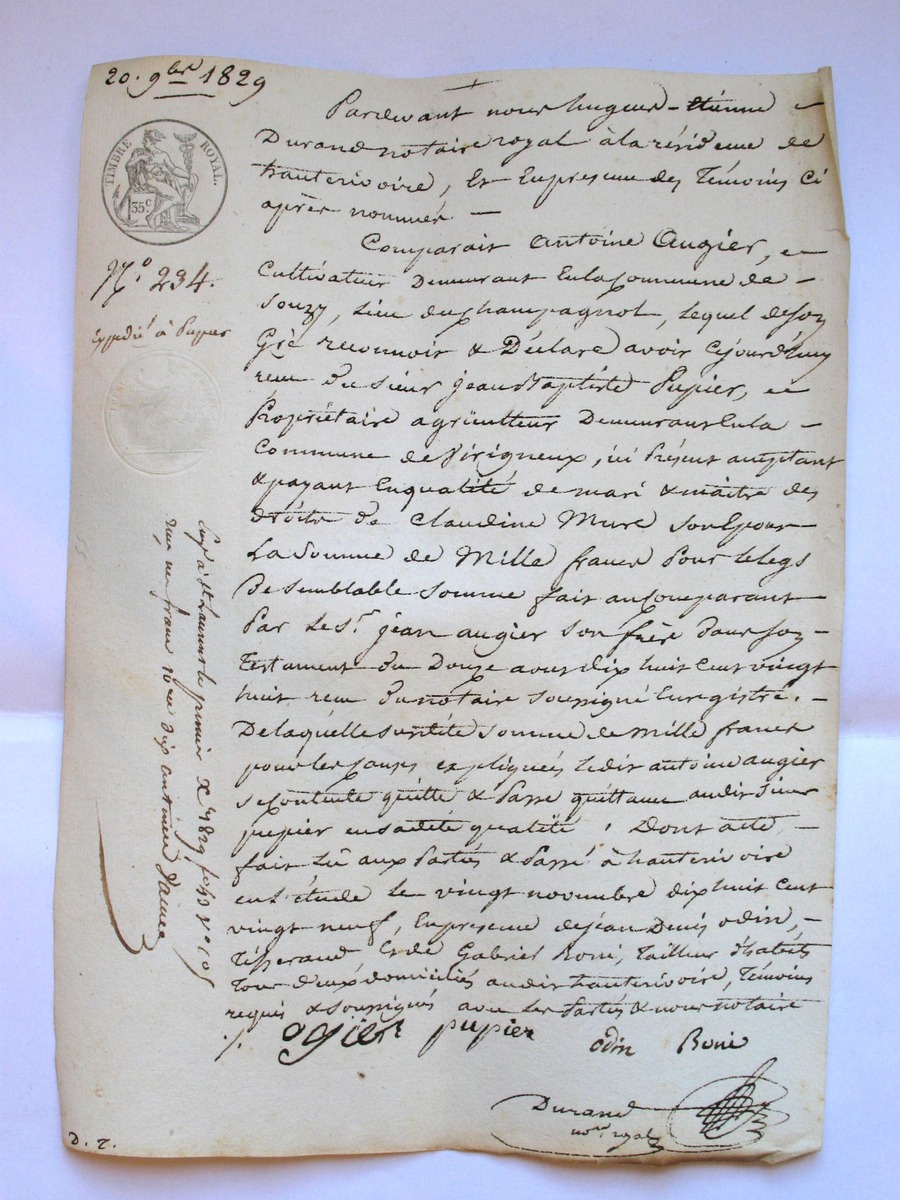 20. 9bre 1829
TIMBRE ROYAL.
35 c
N.º 234.
Expédié à Pupier
Pardevant nous hugues-étienne
Durand notaire royal à la résidence de
hauterivoire, Et En presence des Témoins Ci
après nommés —
Comparait antoine Augier,
Cultivateur Demeurant En la Commune de
Souzy, Lieu du champagnol, Lequel de son
Gré reconnoit & Déclare avoir Cejourd'huy
recu du sieur jean Baptiste Pupier,
Propriétaire agriculteur Demeurant En la
Commune de Virigneux, ici Présent acceptant
& payant En qualité de mari & maitre des
droits de Claudine Mure son Epouse
La Somme de Mille francs Pour le legs
De semblable somme fait au Comparant
Par Le Sr. jean augier son frère dans son
Testament du Douze aout dix huit cent vingt
huit recu du notaire soussigné Enregistré.
De laquelle susdite somme de mille francs
pour les causes expliquées ledit antoine augier
se contente quitte & Passe quittance audit Sieur
pupier en sadite qualité. Dont acte,
fait Lû aux Parties & Passé à hauterivoire
en L'étude Le vingt novembre dix huit cent
vingt neuf, En presence de jean Denis odin,
Tisserand Et de Gabriel Roni, Tailleur d'habits
Tous Deux domiciliés audit hauterivoire, Témoins
requis & Soussignés avec Les Parties & nous notaire
ogier pupier
odin Roni
Durand
nore royal
D. T.
St Laurent le premier Xbre 1829 fo
reçu un franc dix centimes